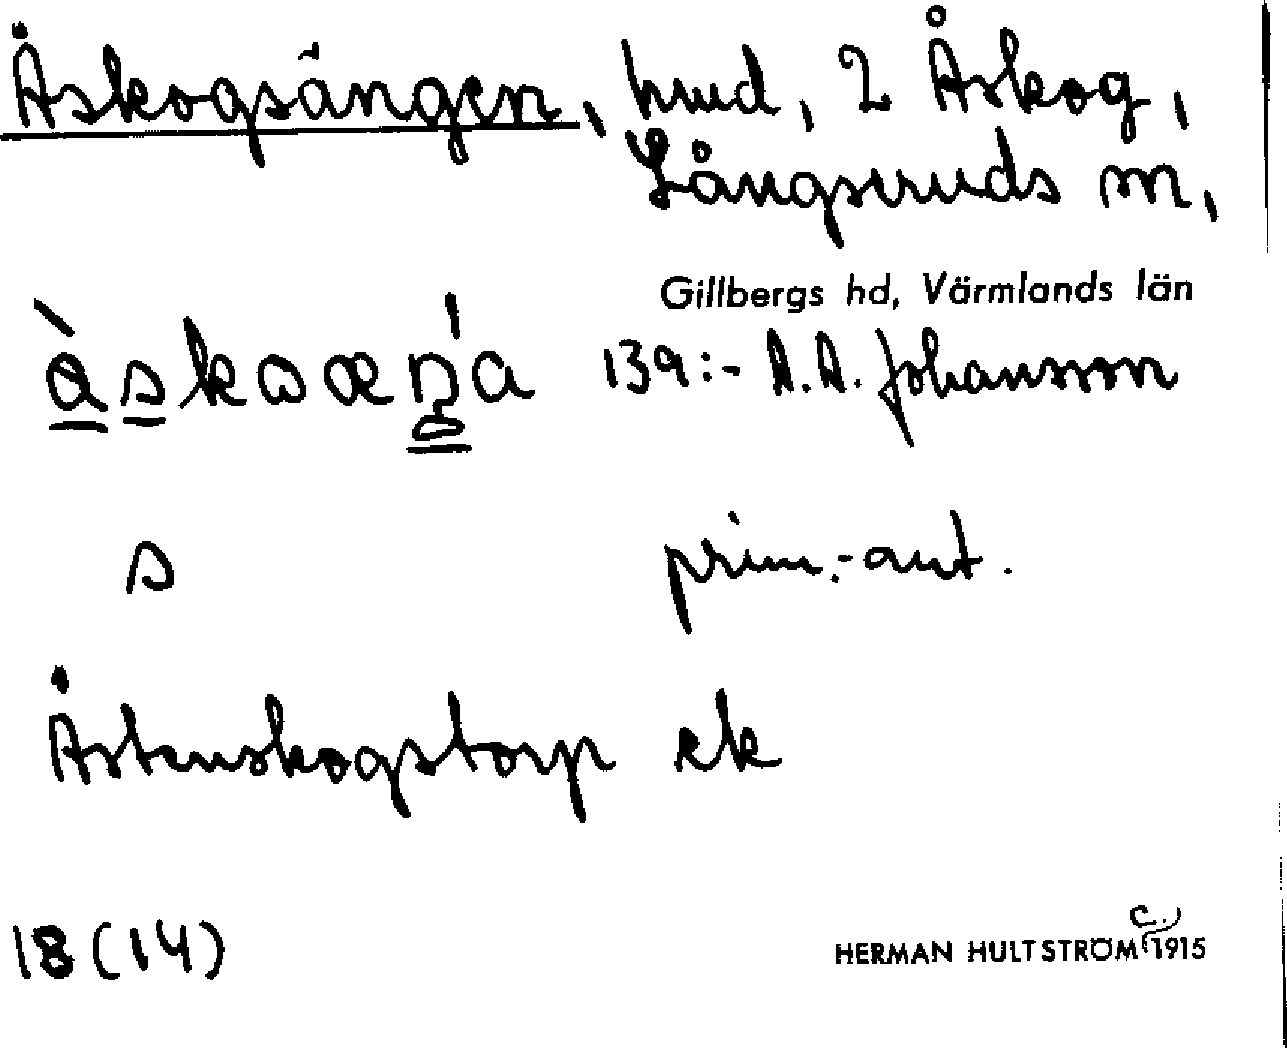 Åskogsängen, hmd, 2 Åskog,
Långseruds sn,
Gillbergs hd, Värmlands län
139:- A. A. Johansson
s
prim.-ant.
Åstenskogstorp ek
18 (14)
HERMAN HULTSTRÖM (c.) 1915